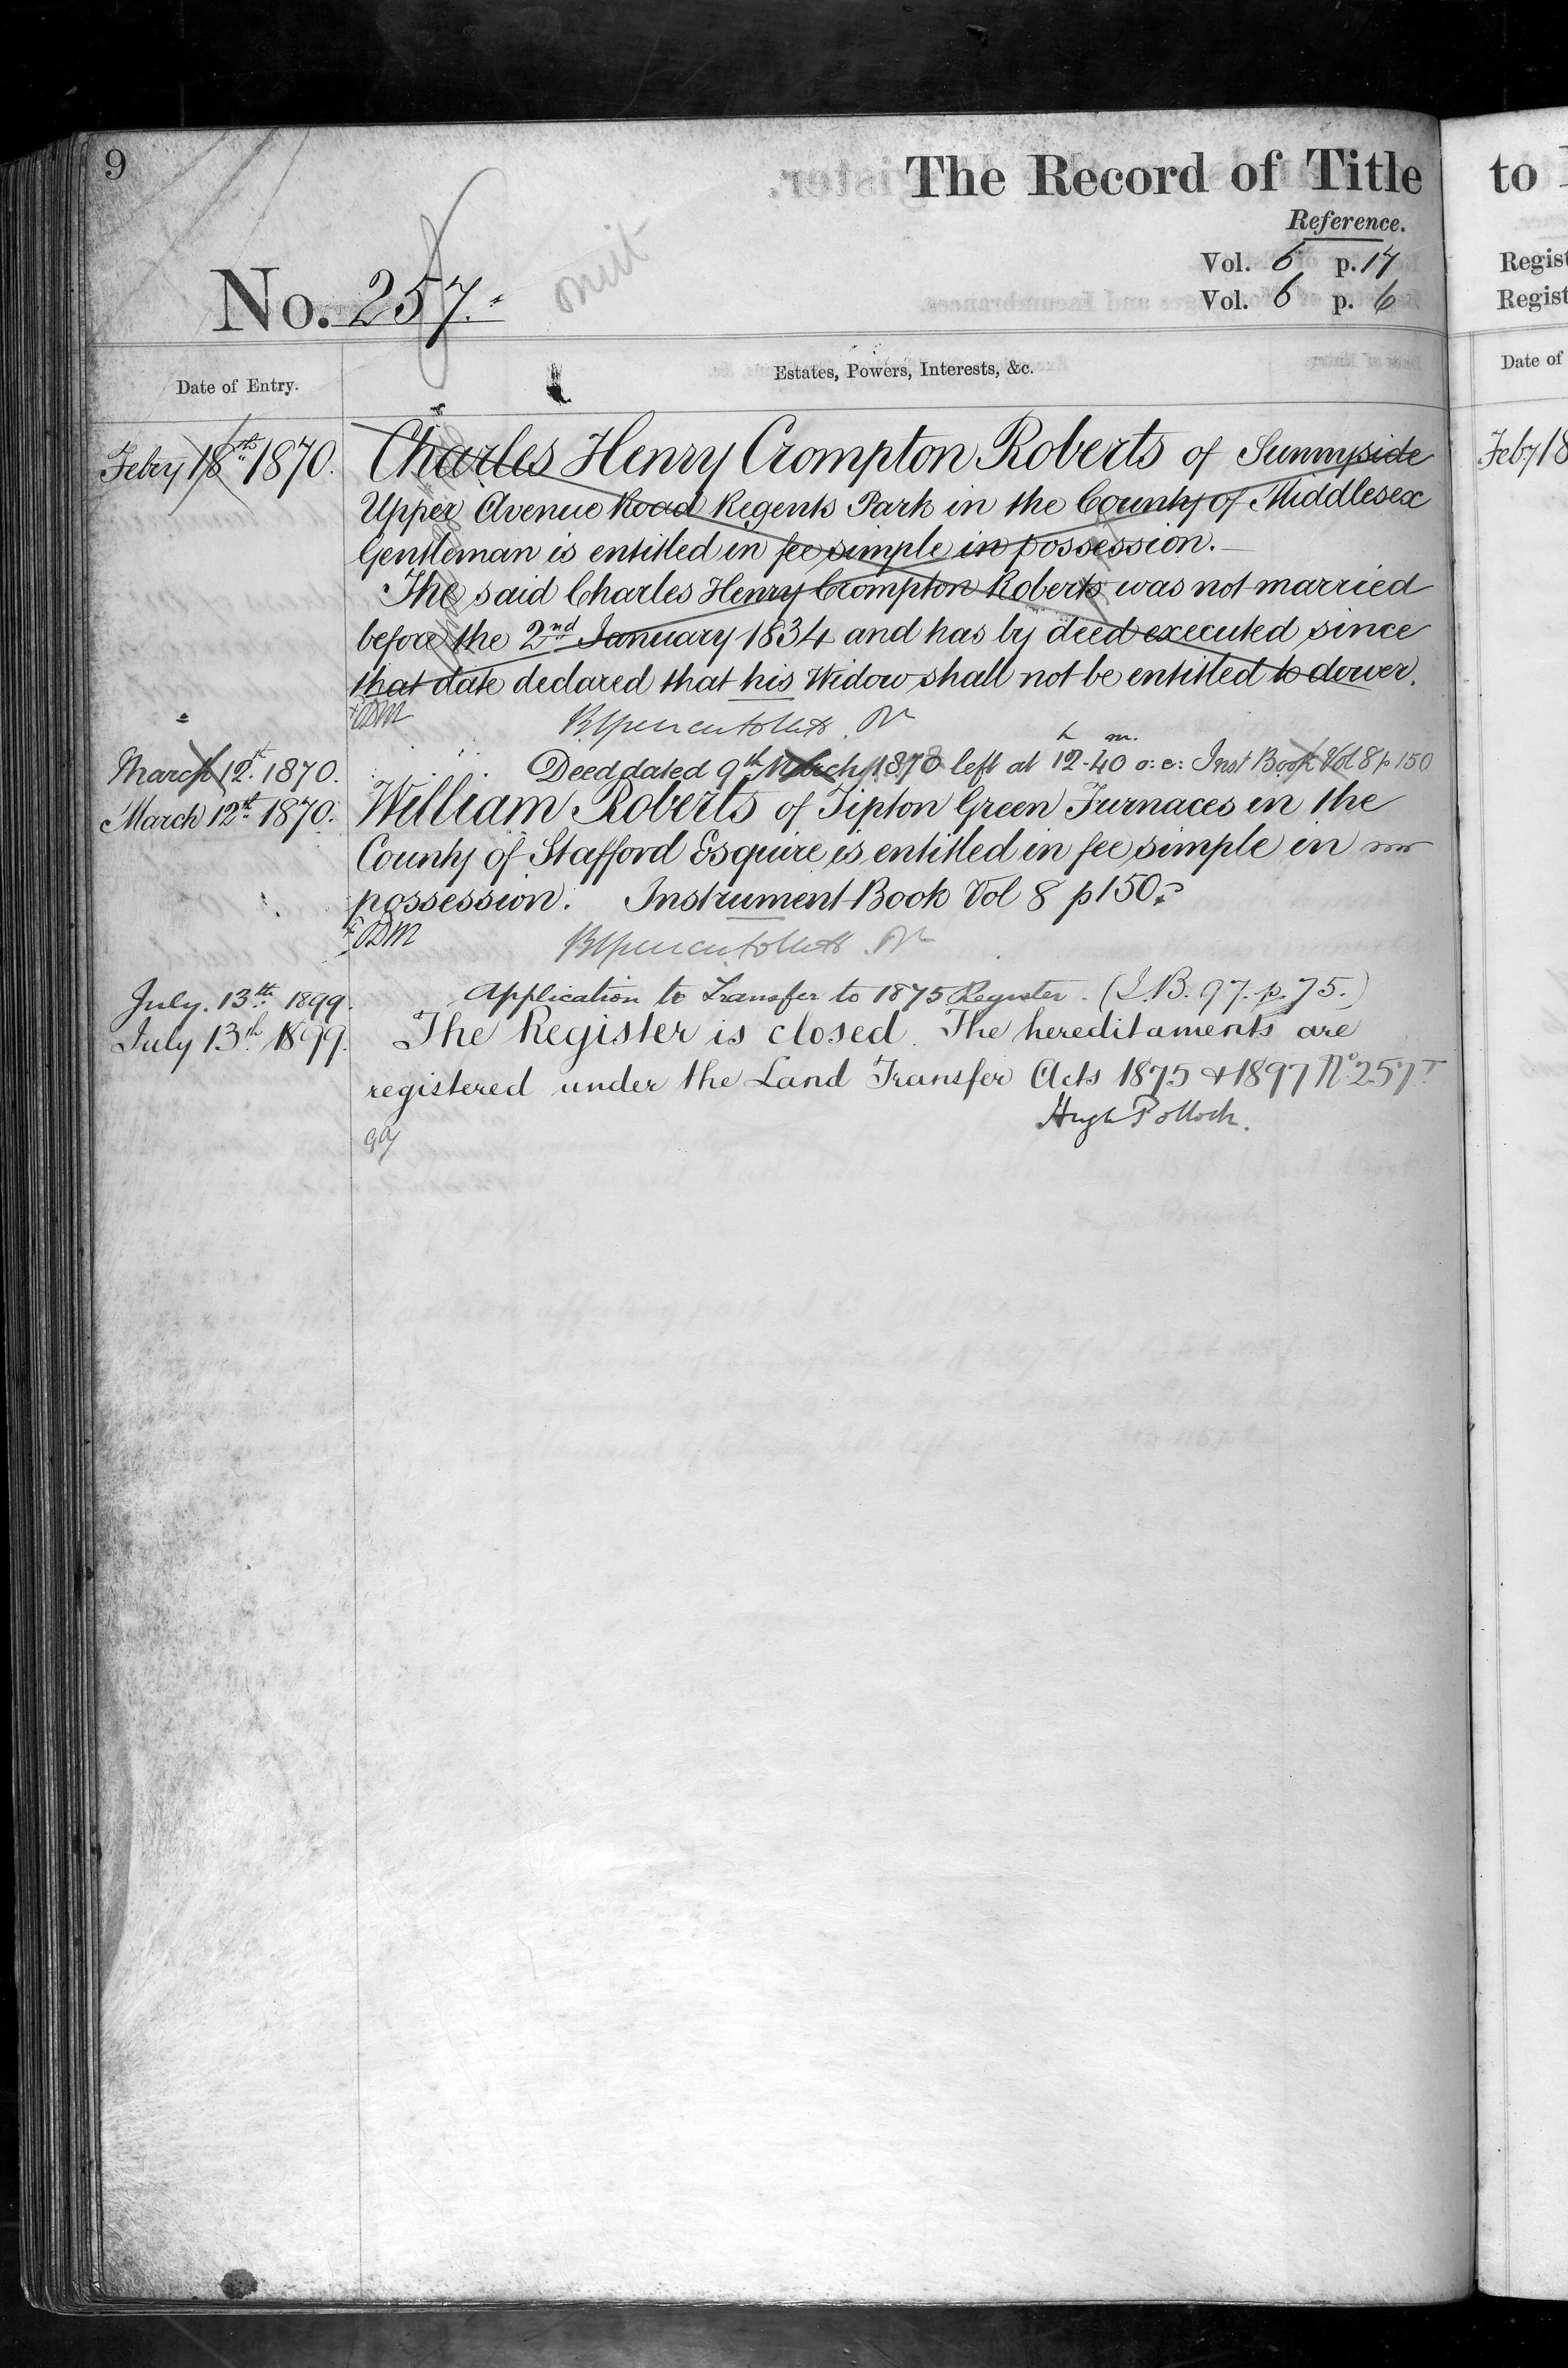 9
The Record of Title
to
Reference.
Vol. 6 p. 17
Vol. 6 p. 6
Regist
Regist
No. 257.
omit
Date of Entry.
Estates, Powers, Interests, &c.
Date of
Febry 18th 1870.
Charles Henry Crompton Roberts of Sunnyside
Upper Avenue Road Regents Park in the County of Middlesex
Gentleman is entitled in fee simple in possession.
The said Charles Henry Crompton Roberts was not married
before the 2nd January 1834 and has by deed executed since
that date declared that his Widow shall not be entitled to dower.
Feby 18
ODM
March 12th 1870.
Deed dated 9th March 1870 left at 12h-40m o:c: Inst Book Vol 8 p 150
March 12th 1870.
William Roberts of Tipton Green Furnaces in the
County of Stafford Esquire is entitled in fee simple in
possession. Instrument Book Vol 8 p 150.
ODM
July. 13th 1899.
Application to Transfer to 1875 Register. (I.B. 97. p. 75.)
July 13th 1899.
The Register is closed. The hereditaments are
registered under the Land Transfer Acts 1875 & 1897 No 257
Hugh Pollock.